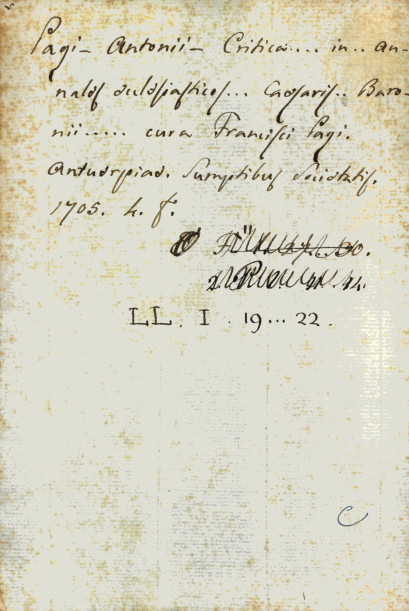 Pagi- Antonii- Critica.... in.. an-
nales ecclesiasticos... Caesaris.. Baro-
nii..... cura Francisci Pagi.
Antuerpiae. Sumptibus Societatis.
1705. 4. f.
LL. I. 19... 22.
C